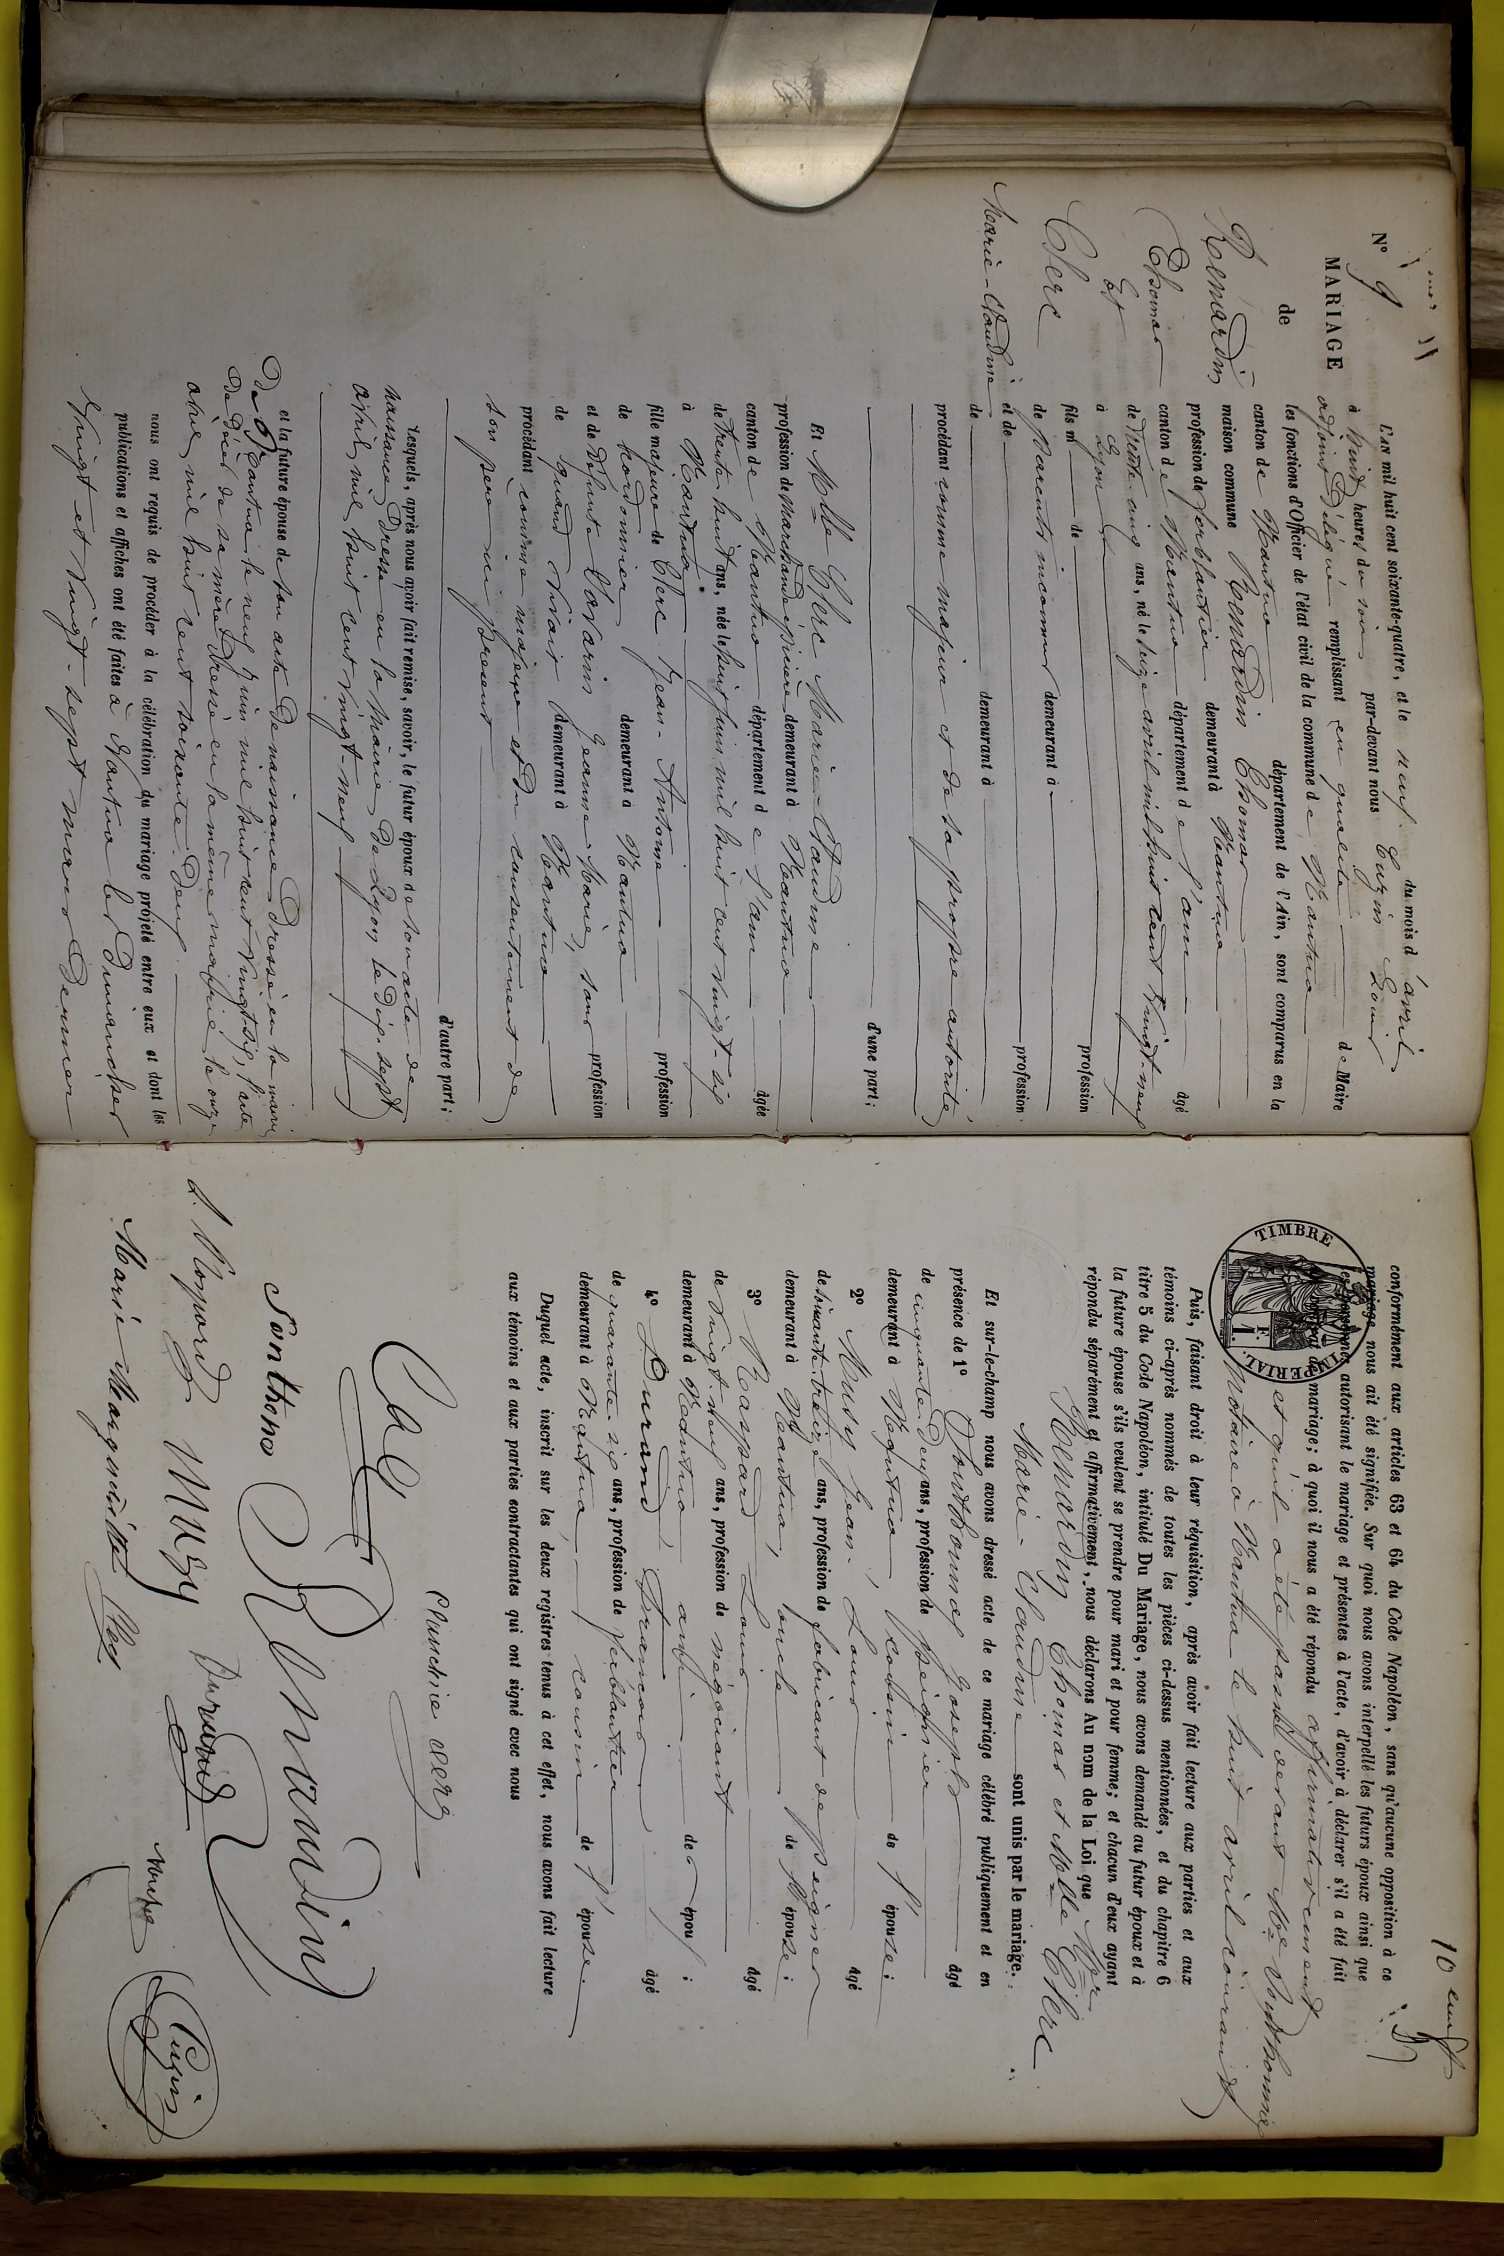 N° 9
MARIAGE
de
Renardin
Thomas
Et
Clerc
Marie-Claudine
L'an mil huit cent soixante-quatre, et le neuf du mois d'avril
à huit heures du soir par-devant nous Cuzin Louis
adjoint délégué remplissant en qualité de Maire
les fonctions d'Officier de l'état civil de la commune de Nantua
canton de Nantua département de l'Ain, sont comparus en la
maison commune Renardin Thomas
profession de ferblantier demeurant à Nantua
canton de Nantua département de l'ain âgé
de trente cinq ans, né le seize avril mil huit cent vingt-neuf
à Lyon
fils de profession
de parents inconnus demeurant à
et de profession
de demeurant à
procédant comme majeur et de sa propre autorité
d'une part;
Et Mlle Clerc Marie-Claudine
profession de marchande épicière demeurant à Nantua
canton de Nantua département de l'ain âgée
de trente huit ans, née le huit juin mil huit cent vingt-six
à Nantua
fille majeure de Clerc Jean-Antoine profession
de cordonnier demeurant à Nantua
et de défunte Navarin Jeanne-Marie, sans profession
de quand vivait demeurant à Nantua
procédant comme majeure et du consentement de
son père ici présent
d'autre part;
Lesquels, après nous avoir fait remise, savoir, le futur époux de son acte de
naissance dressé en la mairie de Lyon le dix-sept
avril mil huit cent vingt-neuf
et la future épouse de son acte de naissance dressé en la mairie
de Nantua le neuf juin mil huit cent vingt six, l'acte
de décès de sa mère dressé en la même mairie le onze
avril mil huit cent soixante deux.
nous ont requis de procéder à la célébration du mariage projeté entre eux et dont les
publications et affiches ont été faites à Nantua les dimanches
vingt et vingt-sept mars dernier
conformément aux articles 63 et 64 du Code Napoléon, sans qu'aucune opposition à ce
mariage nous ait été signifiée. Sur quoi nous avons interpellé les futurs époux ainsi que
les personnes autorisant le mariage et présentes à l'acte, d'avoir à déclarer s'il a été fait
un contrat de mariage; à quoi il nous a été répondu affirmativement
et qu'il a été passé devant Me Sonthonnax
notaire à Nantua le huit avril courant
TIMBRE IMPERIAL
1 F
Puis, faisant droit à leur réquisition, après avoir fait lecture aux parties et aux
témoins ci-après nommés de toutes les pièces ci-dessus mentionnées, et du chapitre 6
titre 5 du Code Napoléon, intitulé Du Mariage, nous avons demandé au futur époux et à
la future épouse s'ils veulent se prendre pour mari et pour femme; et chacun d'eux ayant
répondu séparément et affirmativement, nous déclarons Au nom de la Loi que Mr
Renardin Thomas et Mlle Clerc
Marie-Claudine sont unis par le mariage.
Et sur-le-champ nous avons dressé acte de ce mariage célébré publiquement et en
présence de 1° Sonthonnax Joseph âgé
de cinquante-deux ans, profession de peignier
demeurant à Nantua, cousin de l'épouse;
2° Musy Jean-Louis âgé
de soixante treize ans, profession de fabricant de peignes
demeurant à Nantua, oncle de l'épouse;
3° Raspard Louis âgé
de vingt-neuf ans, profession de négociant
demeurant à Nantua ami de l'époux;
4° Durand, François âgé
de quarante-six ans, profession de ferblantier
demeurant à Nantua, cousin de l'épouse.
Duquel acte, inscrit sur les deux registres tenus à cet effet, nous avons fait lecture
aux témoins et aux parties contractantes qui ont signé avec nous
Claudine clerc
Renardin
Sonthonax
Musy
Durand
Marie Marguerite Clerc
Cuzin